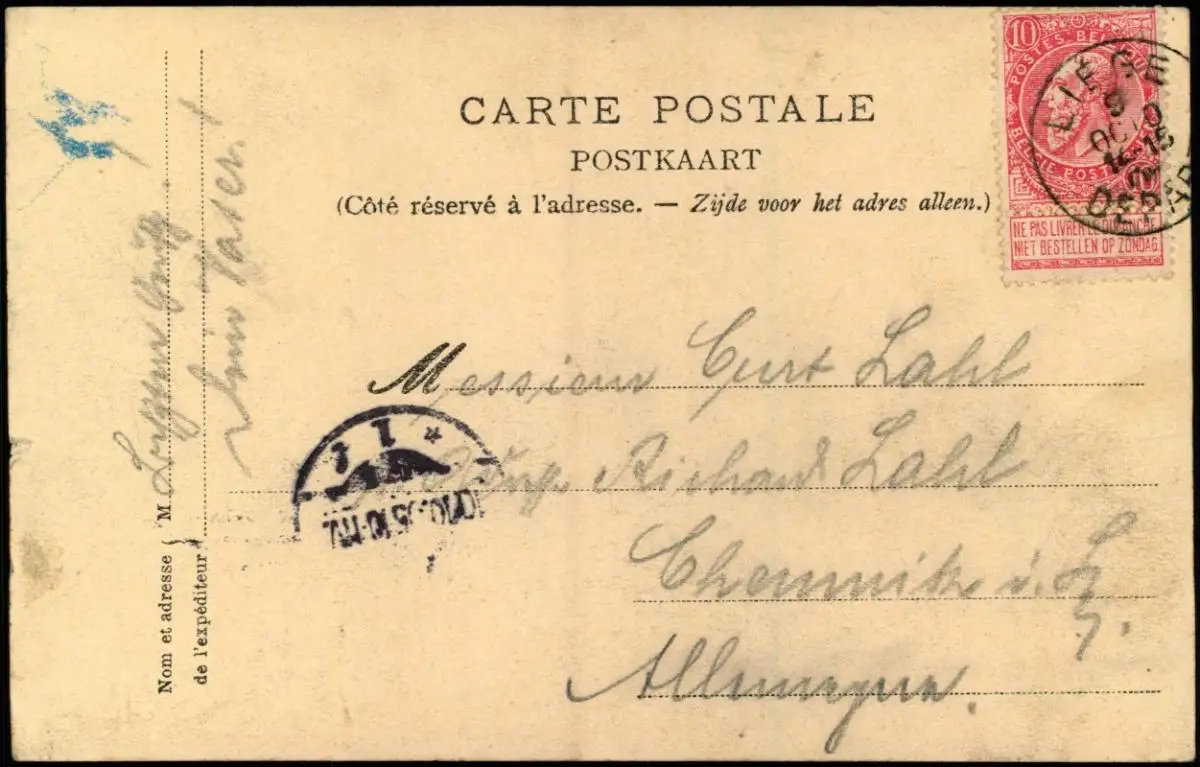 CARTE POSTALE
POSTKAART
(Côté réservé à l'adresse. — Zijde voor het adres alleen.)
10
POSTES BELGIQUE
BELGIE POSTEN
NE PAS LIVRER LE DIMANCHE
NIET BESTELLEN OP ZONDAG
LIÉGE
9
OCT
DEPART
Messieur Curt Lahl
Richard Lahl
Chemnitz i. S.
Allemagne.
10.10.05.10-11V.
Nom et adresse
de l'expéditeur
M.
Vater!